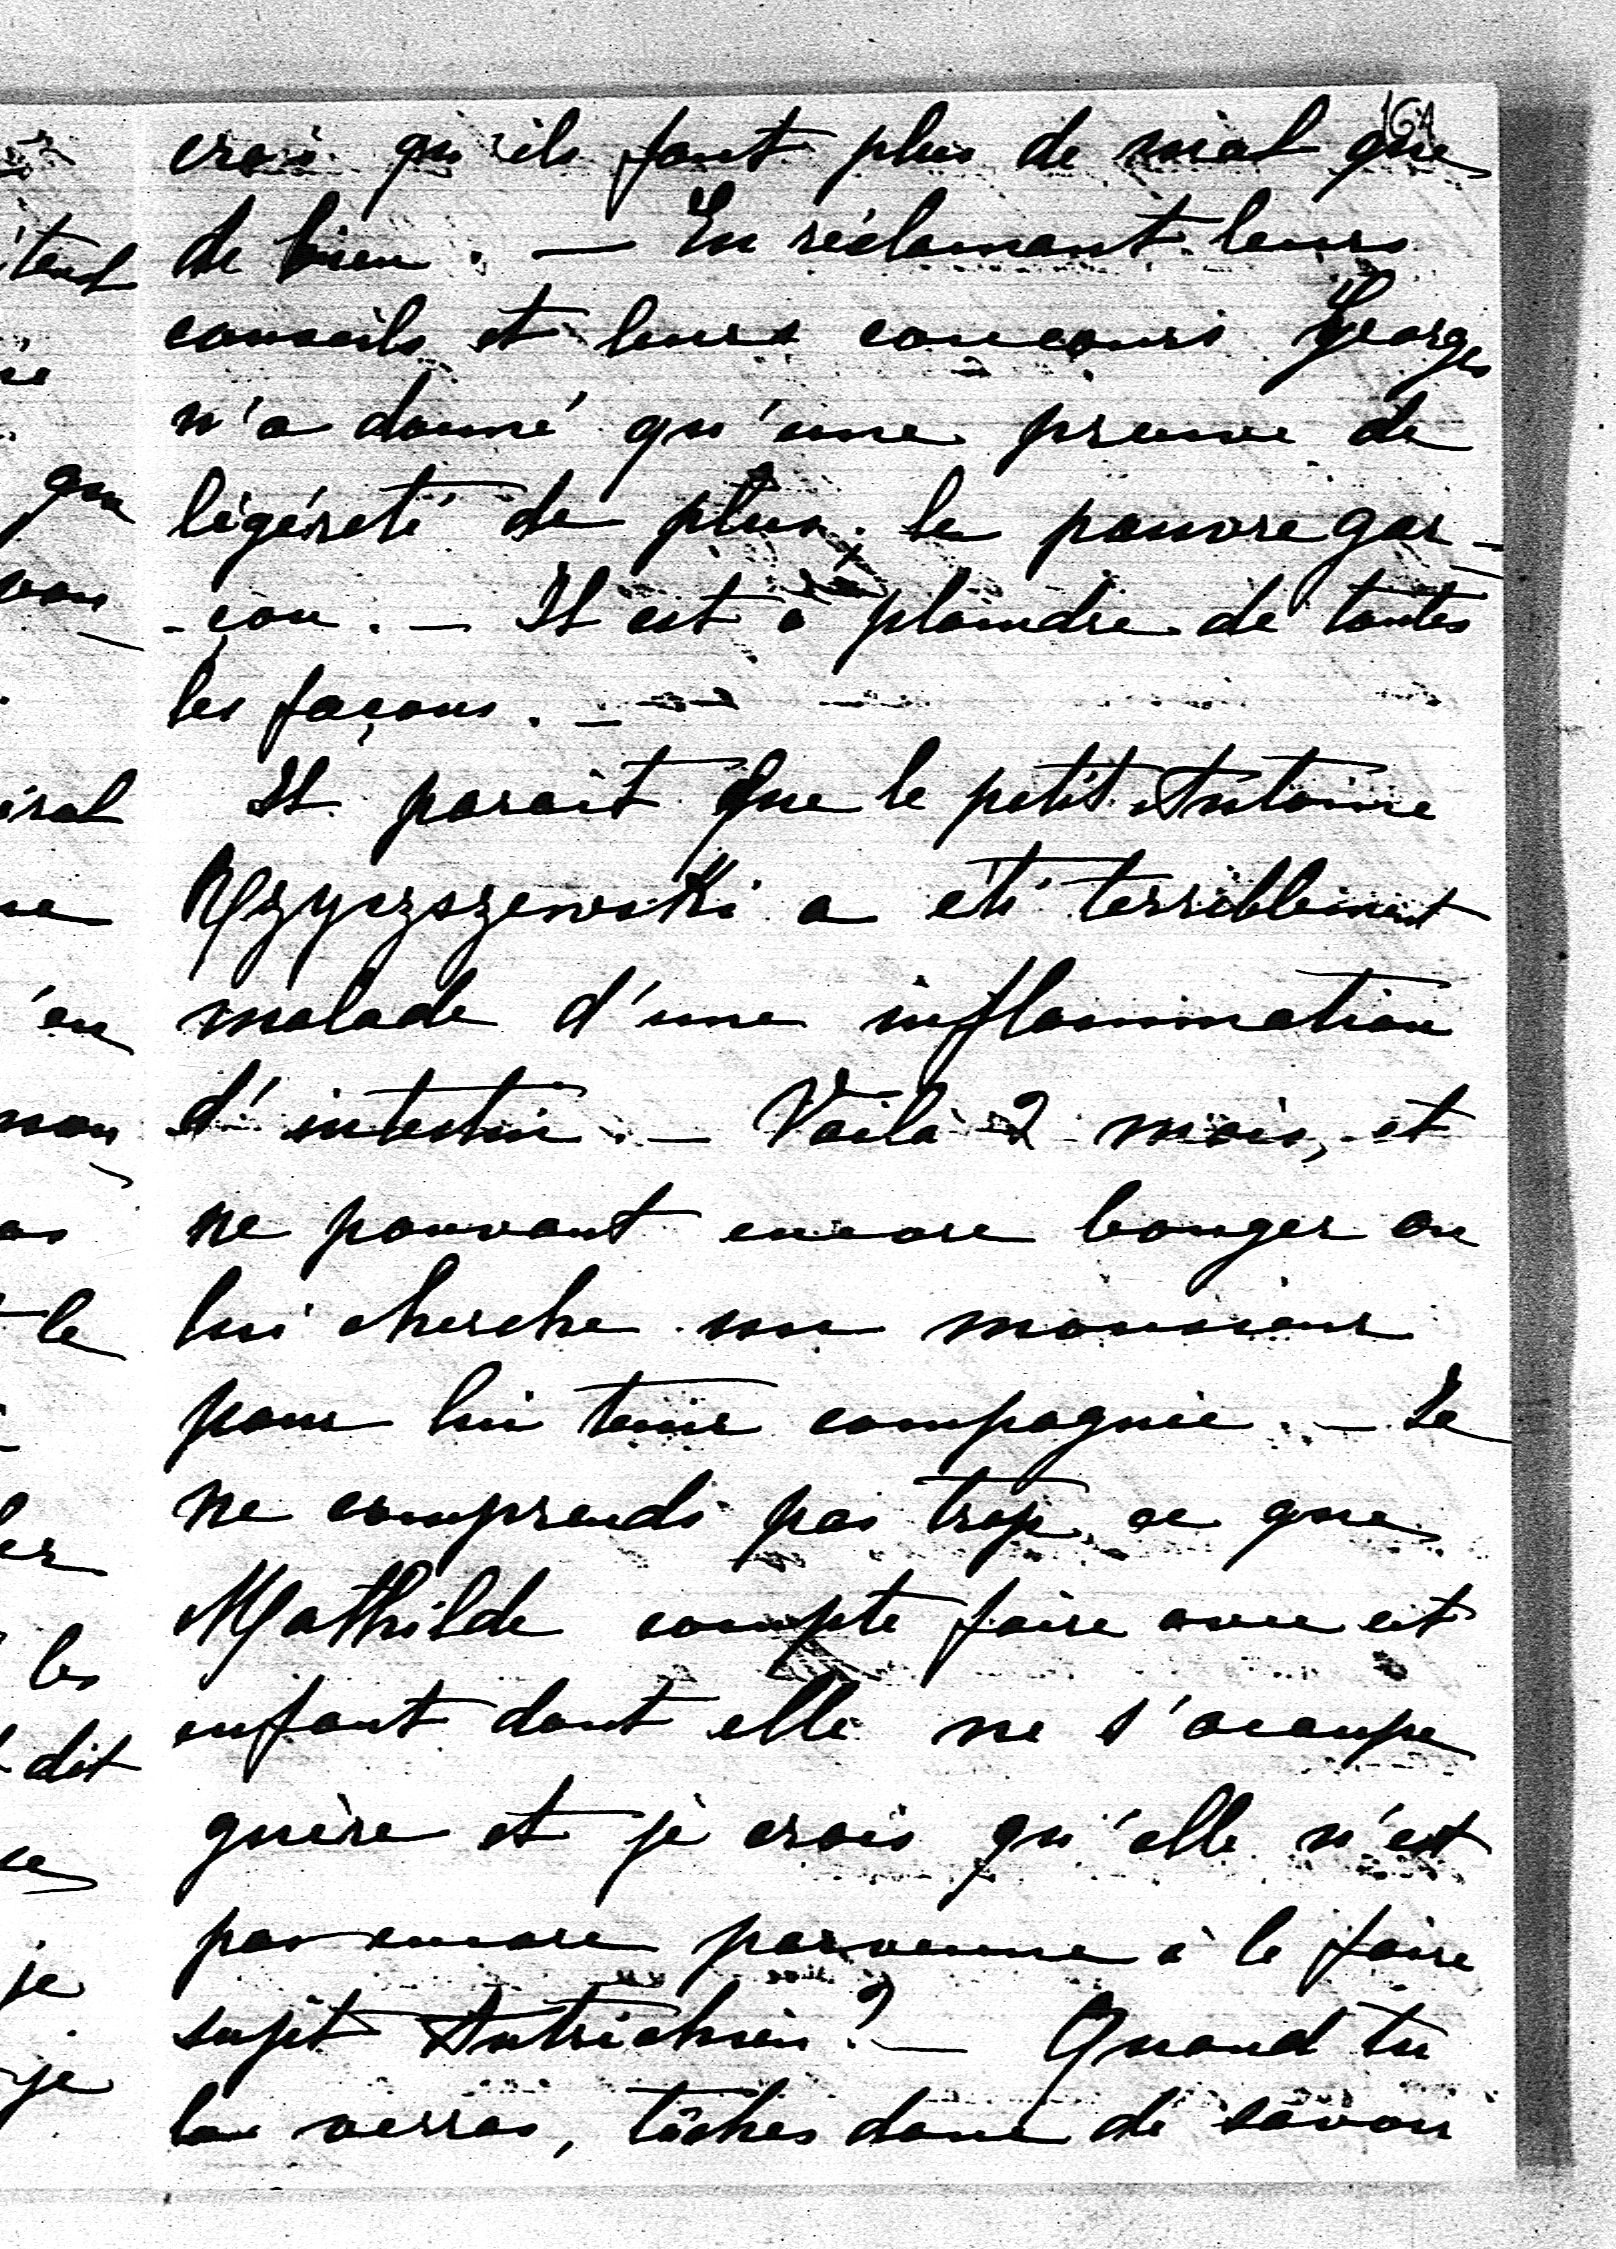 164
crois qu'ils font plus de mal que
de bien. — En réclamant leurs
conseils et leurs concours Georges
n'a donné qu'une preuve de
légéreté de plus. le pauvre gar-
-çon. — Il est à plaindre de toutes
les façons. —
Il parait que le petit Antoine
a été terriblement
malade d'une inflammation
d'intestin. — Voilà 2 mois, et
ne pouvant encore bouger on
lui cherche un monsieur
pour lui tenir compagnie. — Je
ne comprends pas trop ce que
Mathilde compte faire avec cet
enfant dont elle ne s'occupe
guère et je crois qu'elle n'est
pas encore parvenue à le faire
sujet Autrichien? — Quand tu
la verras, tâches donc de savoir